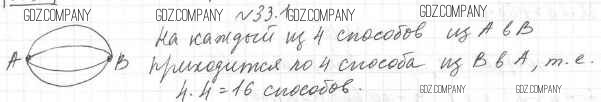 GDZ.COMPANY GDZ.COMPANY №33.1 GDZ.COMPANY GDZ.COMPANY
На каждый из 4 способов из А в В
A B приходится по 4 способа из В в А, т.е.
4·4=16 способов.
GDZ.COMPANY GDZ.COMPANY GDZ.COMPANY GDZ.COMPANY